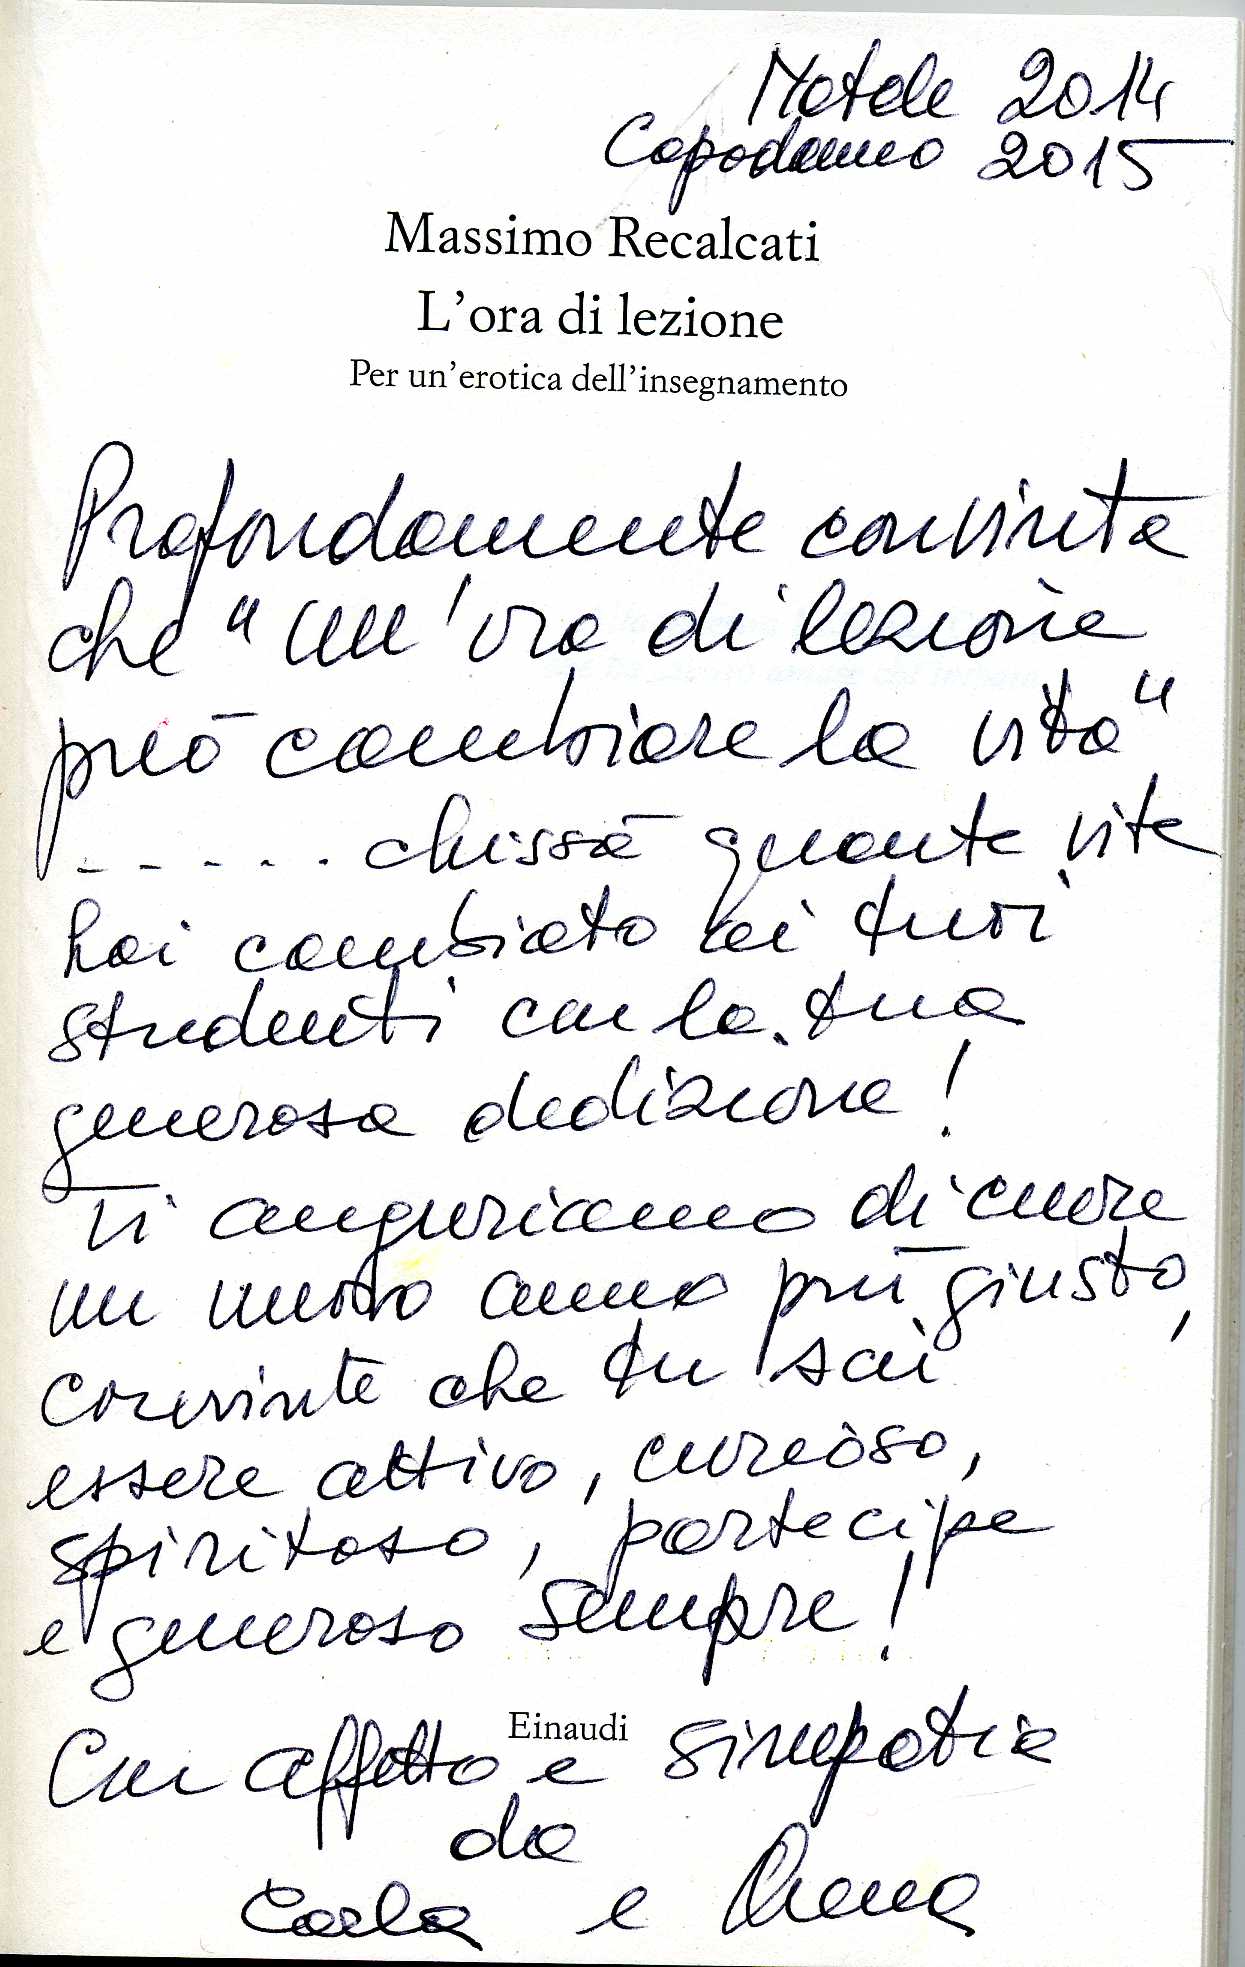 Natale 2014
Capodanno 2015
Massimo Recalcati
L'ora di lezione
Per un'erotica dell'insegnamento
Profondamente convinta
che "un'ora di lezione
può cambiare la vita"
..... chissà quante vite
hai cambiato ai tuoi
studenti con la tua
generosa dedizione!
Ti auguriamo di cuore
un nuovo anno più giusto,
convinte che tu sai
essere attivo, curioso,
spiritoso, partecipe
e generoso sempre!
Einaudi
Con affetto e simpatia
da
Carla e Anna